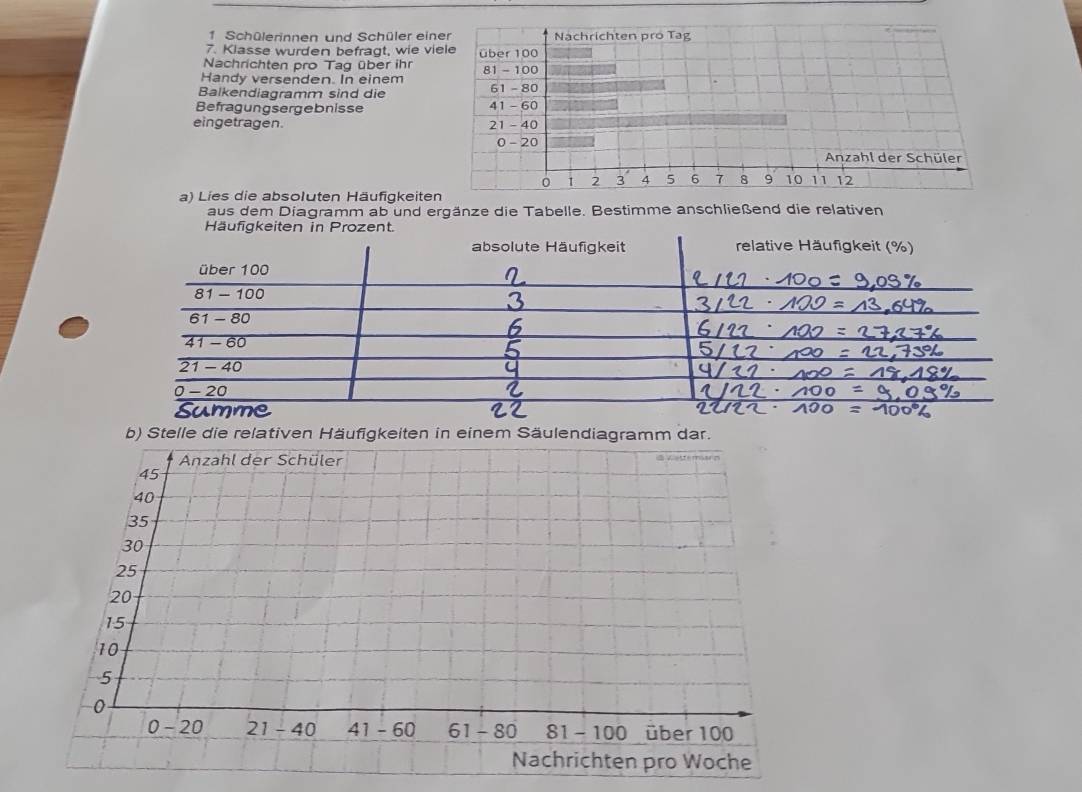 1 Schülerinnen und Schüler einer
7. Klasse wurden befragt, wie viele
Nachrichten pro Tag über ihr
Handy versenden. In einem
Balkendiagramm sind die
Befragungsergebnisse
eingetragen.
Nachrichten pro Tag
über 100
81 - 100
61 - 80
41 - 60
21 - 40
0 - 20
Anzahl der Schüler
0 1 2 3 4 5 6 7 8 9 10 11 12
a) Lies die absoluten Häufigkeiten
aus dem Diagramm ab und ergänze die Tabelle. Bestimme anschließend die relativen
Häufigkeiten in Prozent.
absolute Häufigkeit relative Häufigkeit (%)
über 100 2 2/22 · 100 = 9,09%
81 - 100 3 3/22 · 100 = 13,64%
61 - 80 6 6/22 · 100 = 27,27%
41 - 60 5 5/22 · 100 = 22,73%
21 - 40 4 4/22 · 100 = 18,18%
0 - 20 2 2/22 · 100 = 9,09%
Summe 22 22/22 · 100 = 100%
b) Stelle die relativen Häufigkeiten in einem Säulendiagramm dar.
Anzahl der Schüler
© Westermann
45
40
35
30
25
20
15
10
5
0
0 - 20 21 - 40 41 - 60 61 - 80 81 - 100 über 100
Nachrichten pro Woche